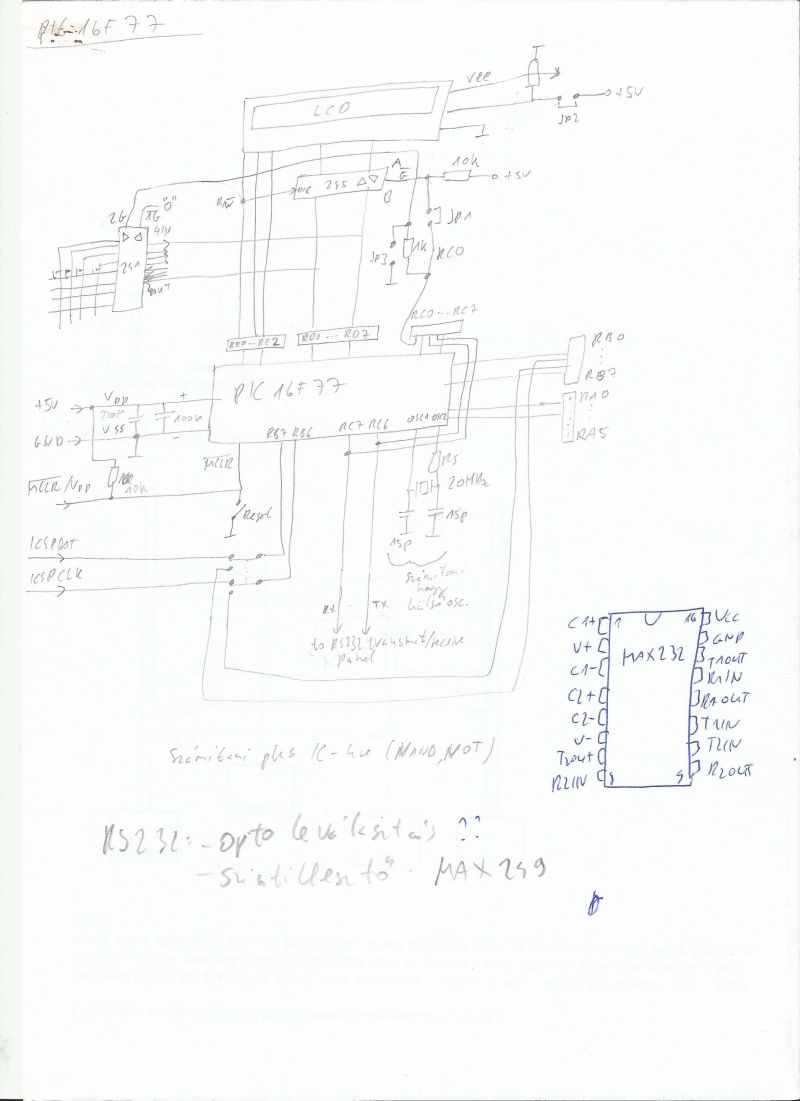 PIC 16F77
LCD
VEE
+5V
JP2
A
G
10k
+5V
DIR
245
B
R/W
2G
1G
"0"
JP1
241
JP3
1k
RC0
RC0...RC7
RE0...RE2
RD0 ... RD7
RB0
RB7
PIC 16F77
+5V
VDD
+
100n
RA0
RA5
GND
VSS
-
RB7 RB6
RC7 RC6
OSC1 OSC2
MCLR
RS
MCLR/VPP
10k
20MHz
Reset
15p
15p
ICSPDAT
ICSPCLK
Számitani
hogy
külső osc.
RX
TX
to RS232 transmit/receive
panel
C1+
1
16
VCC
V+
GND
MAX232
T1OUT
C1-
R1IN
C2+
R1OUT
C2-
T1IN
V-
T2IN
T2out
R2IN
8
9
R2OUT
Számitani plusz IC-kre (NAND, NOT)
RS232: - opto leválasztás ??
- szintillesztő. MAX249